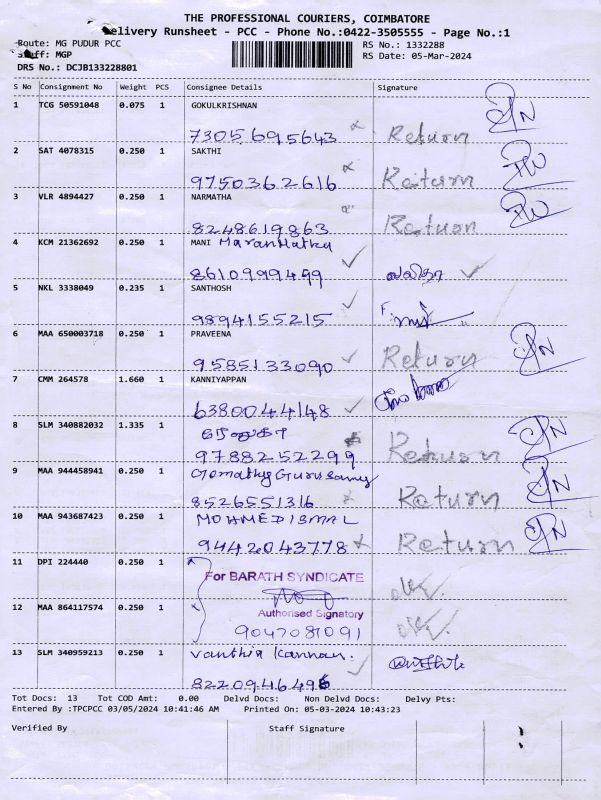 THE PROFESSIONAL COURIERS, COIMBATORE
Delivery Runsheet - PCC - Phone No.:0422-3505555 - Page No.:1
Route: MG PUDUR PCC RS No.: 1332288
Staff: MGP RS Date: 05-Mar-2024
DRS No.: DCJB133228801
S No Consignment No Weight PCS Consignee Details Signature
1 TCG 50591048 0.075 1 GOKULKRISHNAN
7305695643 x Return
2 SAT 4078315 0.250 1 SAKTHI
9750362616 x Return
3 VLR 4894427 0.250 1 NARMATHA
8248619863 Return
4 KCM 21362692 0.250 1 MANI
8610999499 ✓
5 NKL 3338049 0.235 1 SANTHOSH
9894155215 ✓
6 MAA 650003718 0.250 1 PRAVEENA
9585133090 ✓ Return
7 CMM 264578 1.660 1 KANNIYAPPAN
6380044148 ✓
8 SLM 340882032 1.335 1
9788252299 Return
9 MAA 944458941 0.250 1 Gomathy Gurusamy
8526551316 x Return
10 MAA 943687423 0.250 1 MOHMEDISMAL
9442043778 x Return
11 DPI 224440 0.250 1
For BARATH SYNDICATE
12 MAA 864117574 0.250 1
Authorised Signatory
9047087091
13 SLM 340959213 0.250 1 Vanthia Kannan.
8220946496 ✓
Tot Docs: 13 Tot COD Amt: 0.00 Delvd Docs: Non Delvd Docs: Delvy Pts:
Entered By :TPCPCC 03/05/2024 10:41:46 AM Printed On: 05-03-2024 10:43:23
Verified By Staff Signature